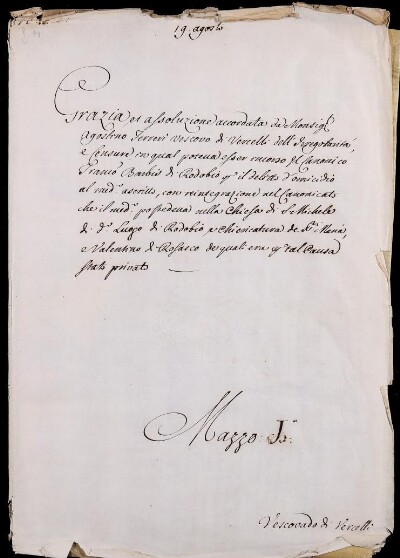 19. agosto
Grazia et assoluzione accordata da Monsigr
Agostino Ferreri vescovo di Vercelli dell'Irregolarità,
e Censure in qual poteva esser incorso il Canonico
Barbis di Robbio pr il delitto d'omicidio
al medo ascritto, con reintegrazione nel Canonicato
che il medo possedeva nella Chiesa di S. Michele
di do Luogo di Robbio e Chiericatura de Sti Maria,
e Valentino di Rosasco de quali era pr tal causa
stato privato
Mazzo
Vescovado di Vercelli